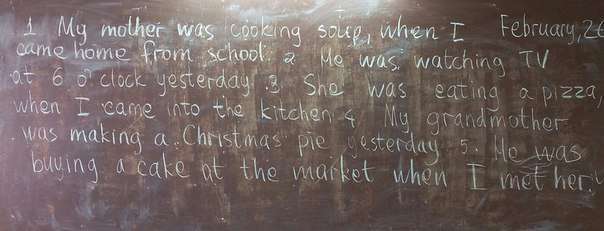 1 My mother was cooking soup, when I February, 26
came home from school. 2 He was watching TV
at 6 o'clock yesterday. 3 She was eating a pizza,
when I came into the kitchen 4 My grandmother
was making a Christmas pie yesterday 5. He was
buying a cake at the market when I met her.